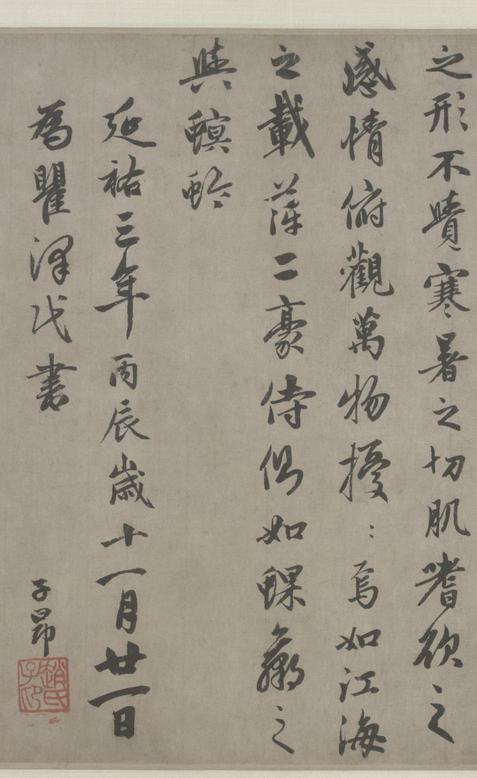 之形不覺寒暑之切肌嗜欲之
感情俯觀萬物擾〻焉如江海
之載萍二豪侍側如蜾蠃之
與螟蛉
延祐三年丙辰歲十一月廿一日
為瞿澤民書
子昂
趙氏子昂